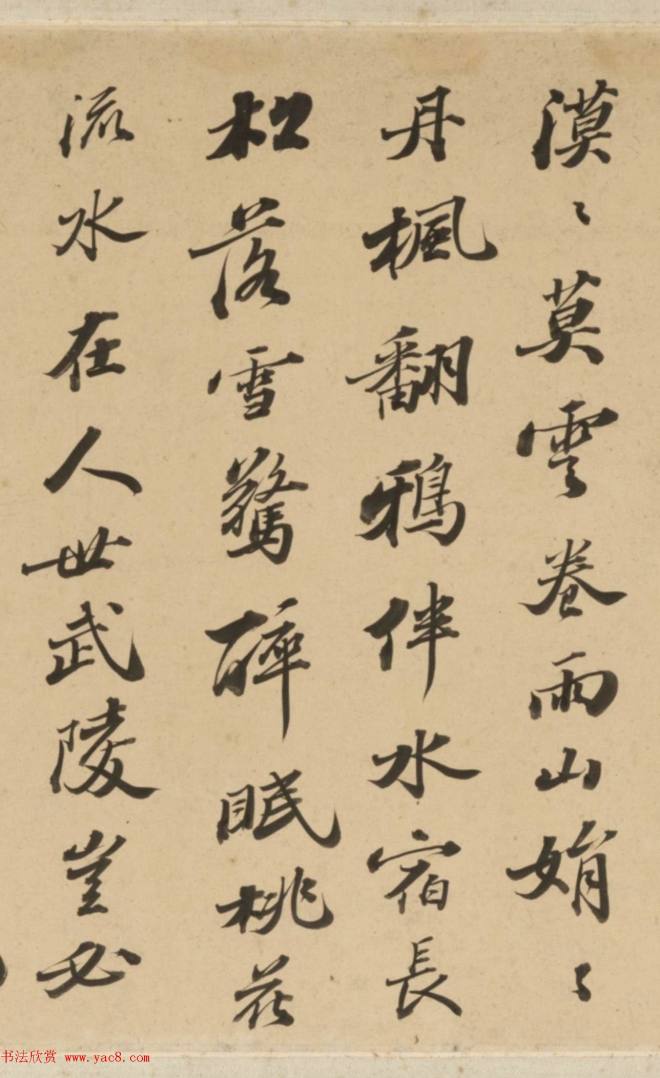 漠〻莫雲卷雨山娟〻
丹楓翻鴉伴水宿長
松落雪驚醉眠桃花
流水在人世武陵豈必
书法欣赏 www.yac8.com